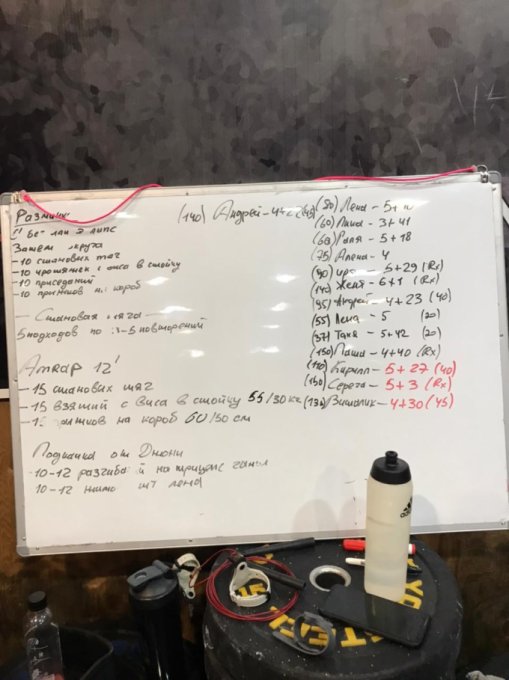 Разминк
Затем круга
- 10 становых тяг
- 10 с виса в стойку
- 10 приседаний
- 10 прыжков на короб
Становая тяга
5 подходов по 3-5 повторений
Amrap 12'
- 15 становых тяг
- 15 взятий с виса в стойку 55/30 кг
- 15 прыжков на короб 60/50 см
Подкачка от Джони
10-12 разгибаний на трицепс
10-12
(140) Андрей - 4+2
(80) Лена - 5+
(60) Лина - 3+41
(68) Галя - 5+18
(75) Алена - 4
(90) Ира - 5+29 (Rx)
(140) Женя - 6+1 (Rx)
(95) Андрей - 4+23 (40)
(55) Лена - 5 (20)
(37) Таня - 5+42 (20)
(150) Паша - 4+40 (Rx)
(110) Кирилл - 5+27 (40)
(150) Серега - 5+3 (Rx)
(130) Виталик - 4+30 (45)
adidas